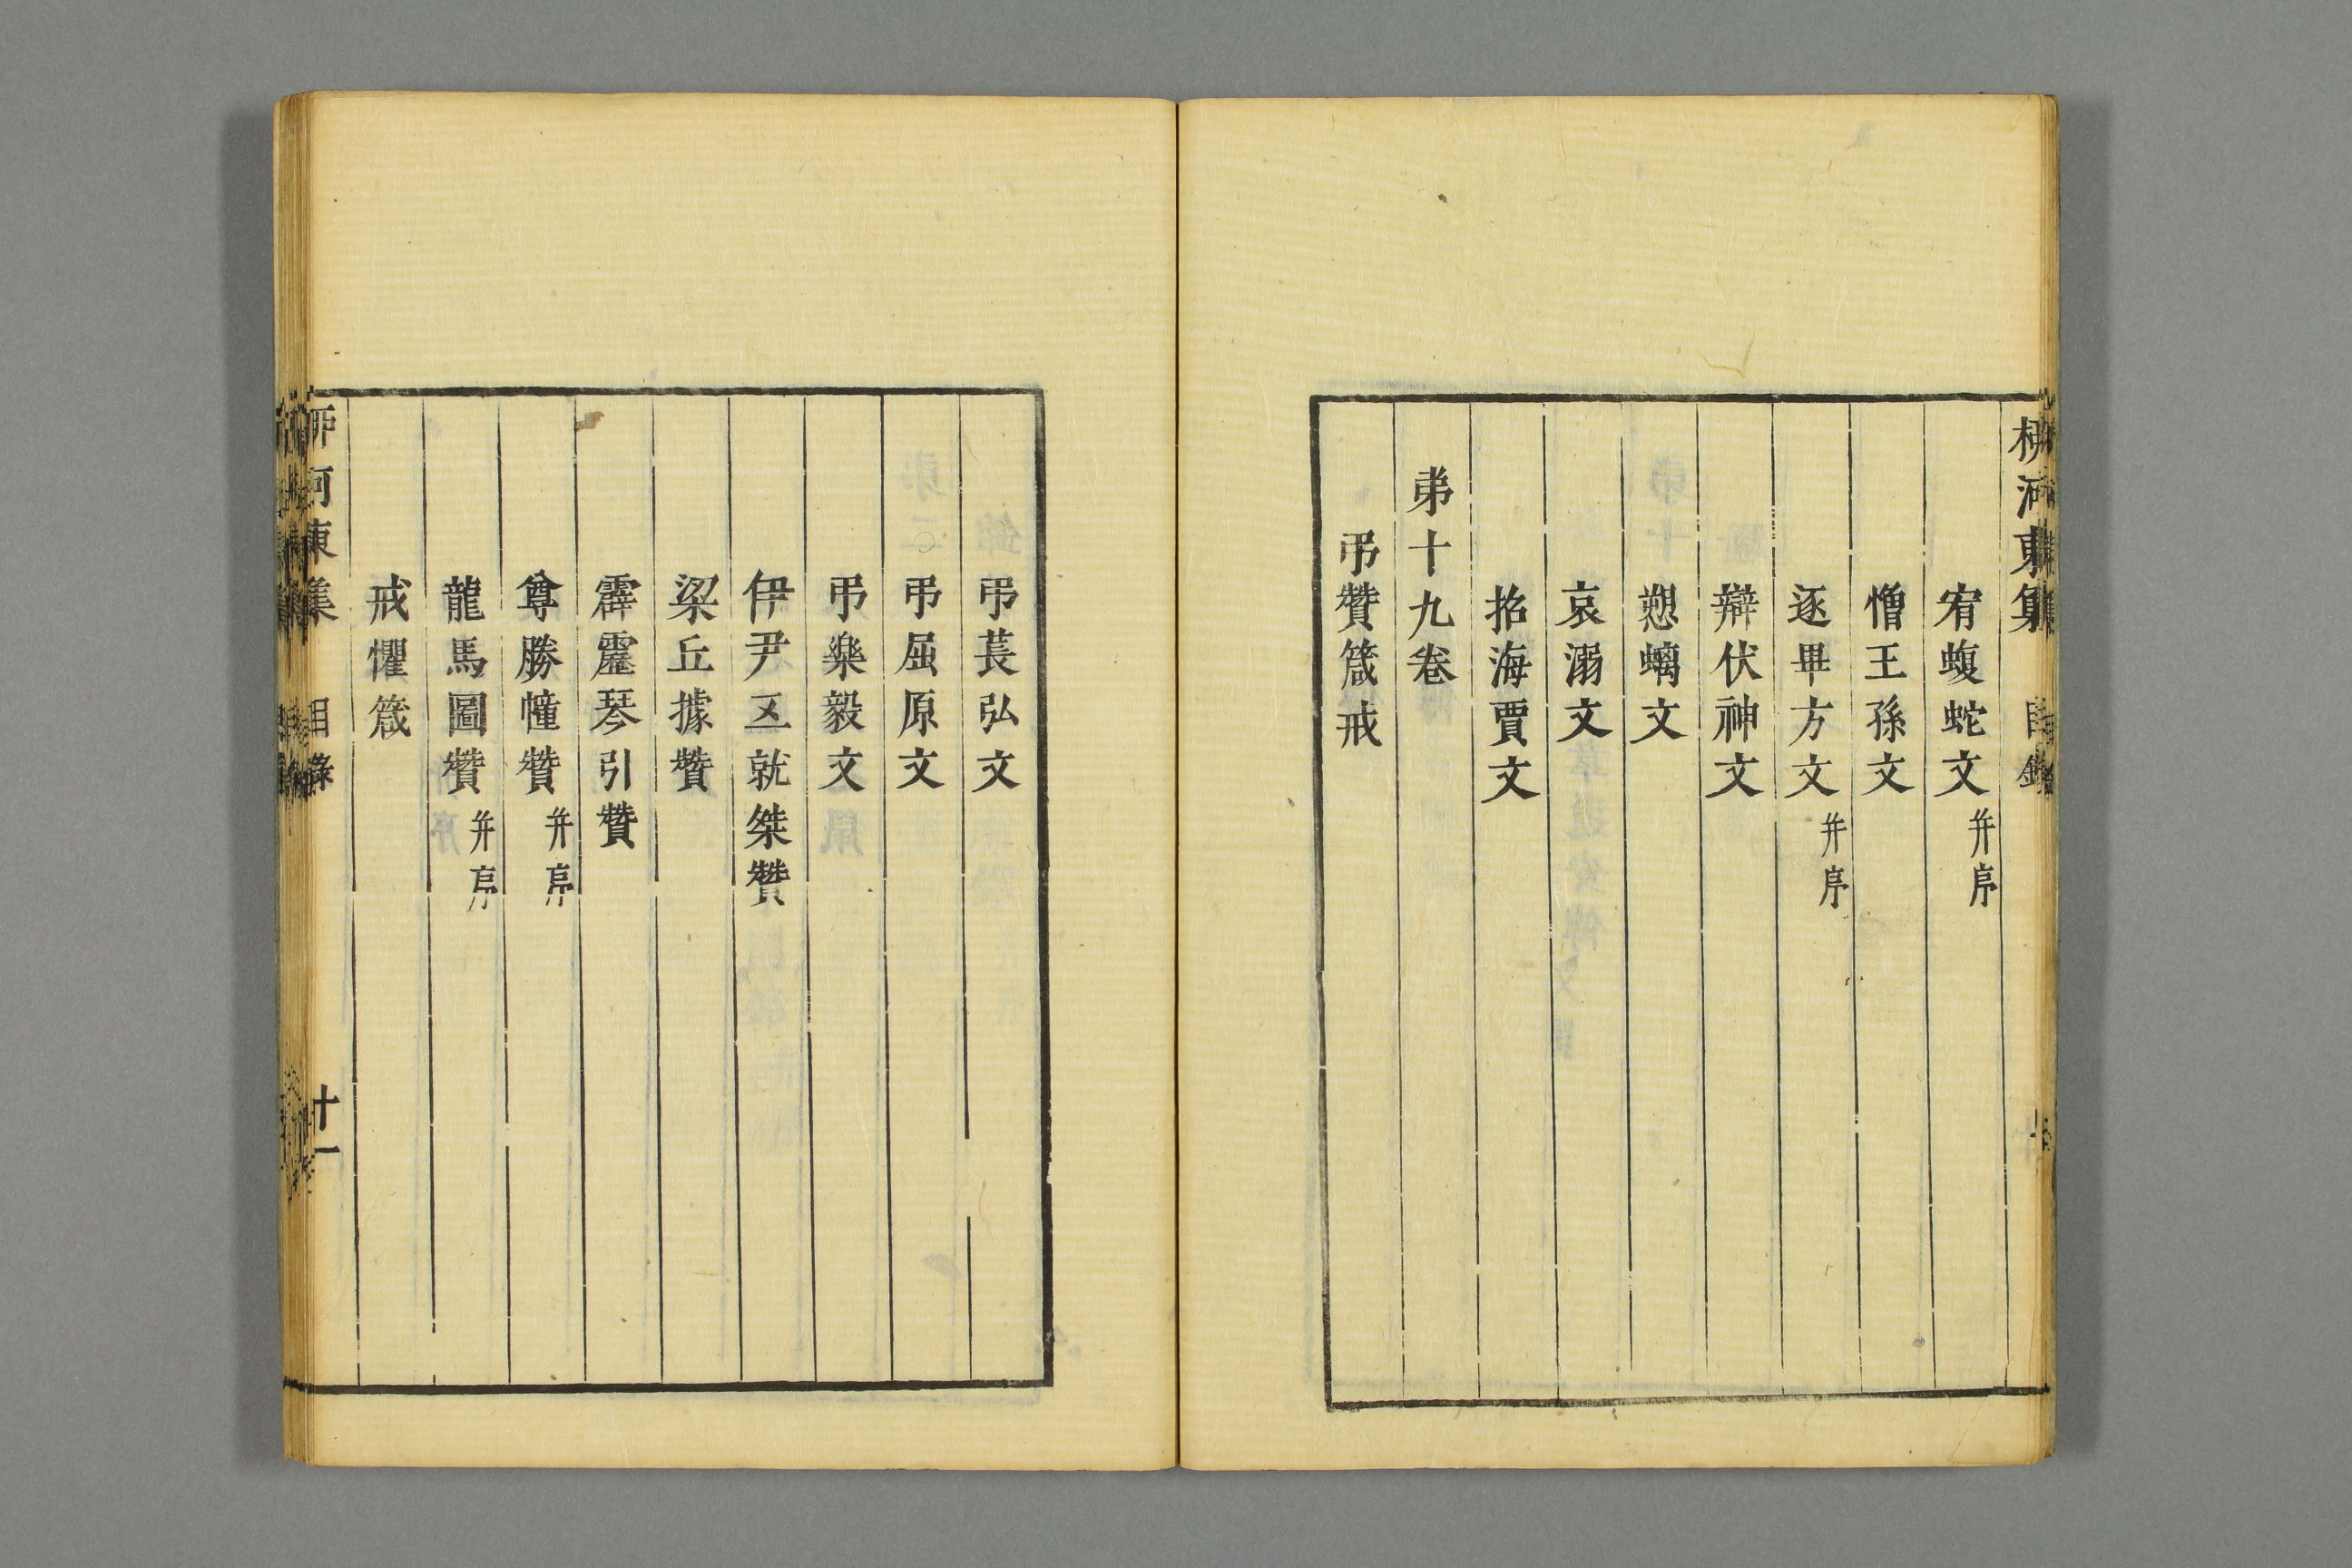 柳河東集 目錄
宥蝮蛇文 并序
憎王孫文
逐畢方文 并序
辯伏神文
愬螭文
哀溺文
招海賈文
弟十九卷
弔贊箴戒
弔萇弘文
弔屈原文
弔樂毅文
伊尹五就桀贊
梁丘據贊
霹靂琴引贊
尊勝幢贊 并序
龍馬圖贊 并序
戒懼箴
柳河東集 目錄 十一